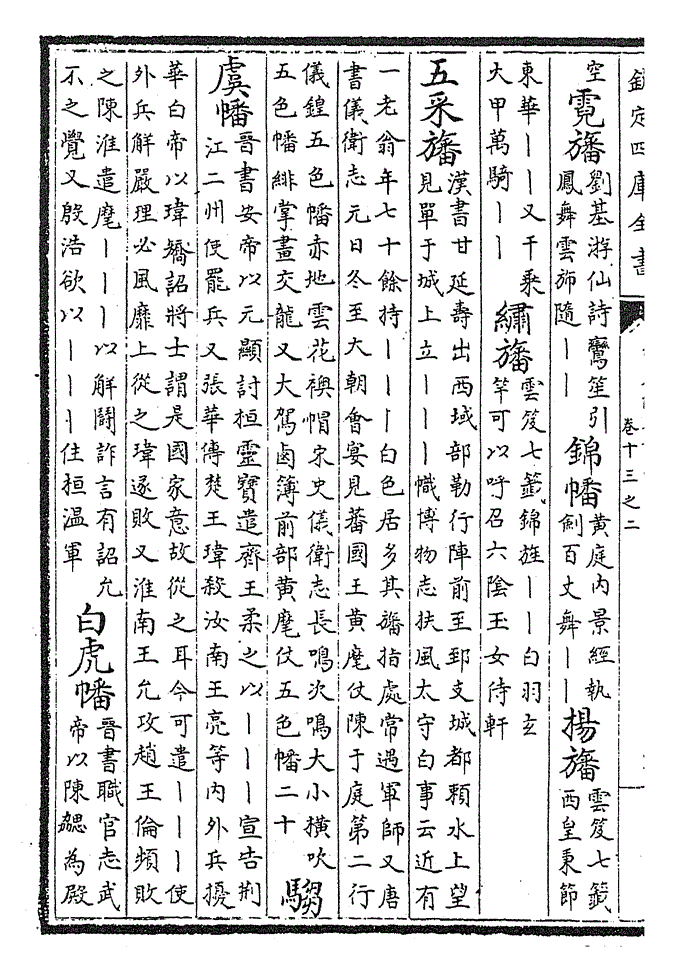 欽定四庫全書
卷十三之二
空
霓旛
劉基游仙詩鸞笙引
鳳舞雲斾隨丨丨
錦幡
黃庭内景經執
劍百丈舞丨丨
揚旛
雲笈七籤
西皇東節
東華丨丨又千乘
大甲萬騎丨丨
繡旛
雲笈七籤錦旌丨丨白羽玄
竿可以呼召六陰玉女侍軒
五采旛
漢書甘延壽出西域部勒行陣前至郅支城都賴水上望
見單于城上立丨丨丨幟博物志扶風太守白事云近有
一老翁年七十餘持丨丨丨白色居多其旛指處常遇軍師又唐
書儀衛志元日冬至大朝會宴見蕃國王黃麾仗陳于庭第二行
儀鍠五色幡赤地雲花襖帽宋史儀衛志長鳴次鳴大小橫吹
五色幡緋掌畫交龍又大駕鹵簿前部黃麾仗五色幡二十
騶
虞幡
晉書安帝以元顯討桓靈寶遣齊王柔之以丨丨丨宣告荆
江二州使罷兵又張華傳楚王瑋殺汝南王亮等内外兵擾
華白帝以瑋矯詔將士謂是國家意故從之耳今可遣丨丨丨使
外兵解嚴理必風靡上從之瑋遂敗又淮南王允攻趙王倫頻敗
之陳淮遣麾丨丨丨以解鬬詐言有詔允
不之覺又殷浩欲以丨丨丨住桓温軍
白虎幡
晉書職官志武
帝以陳勰為殿